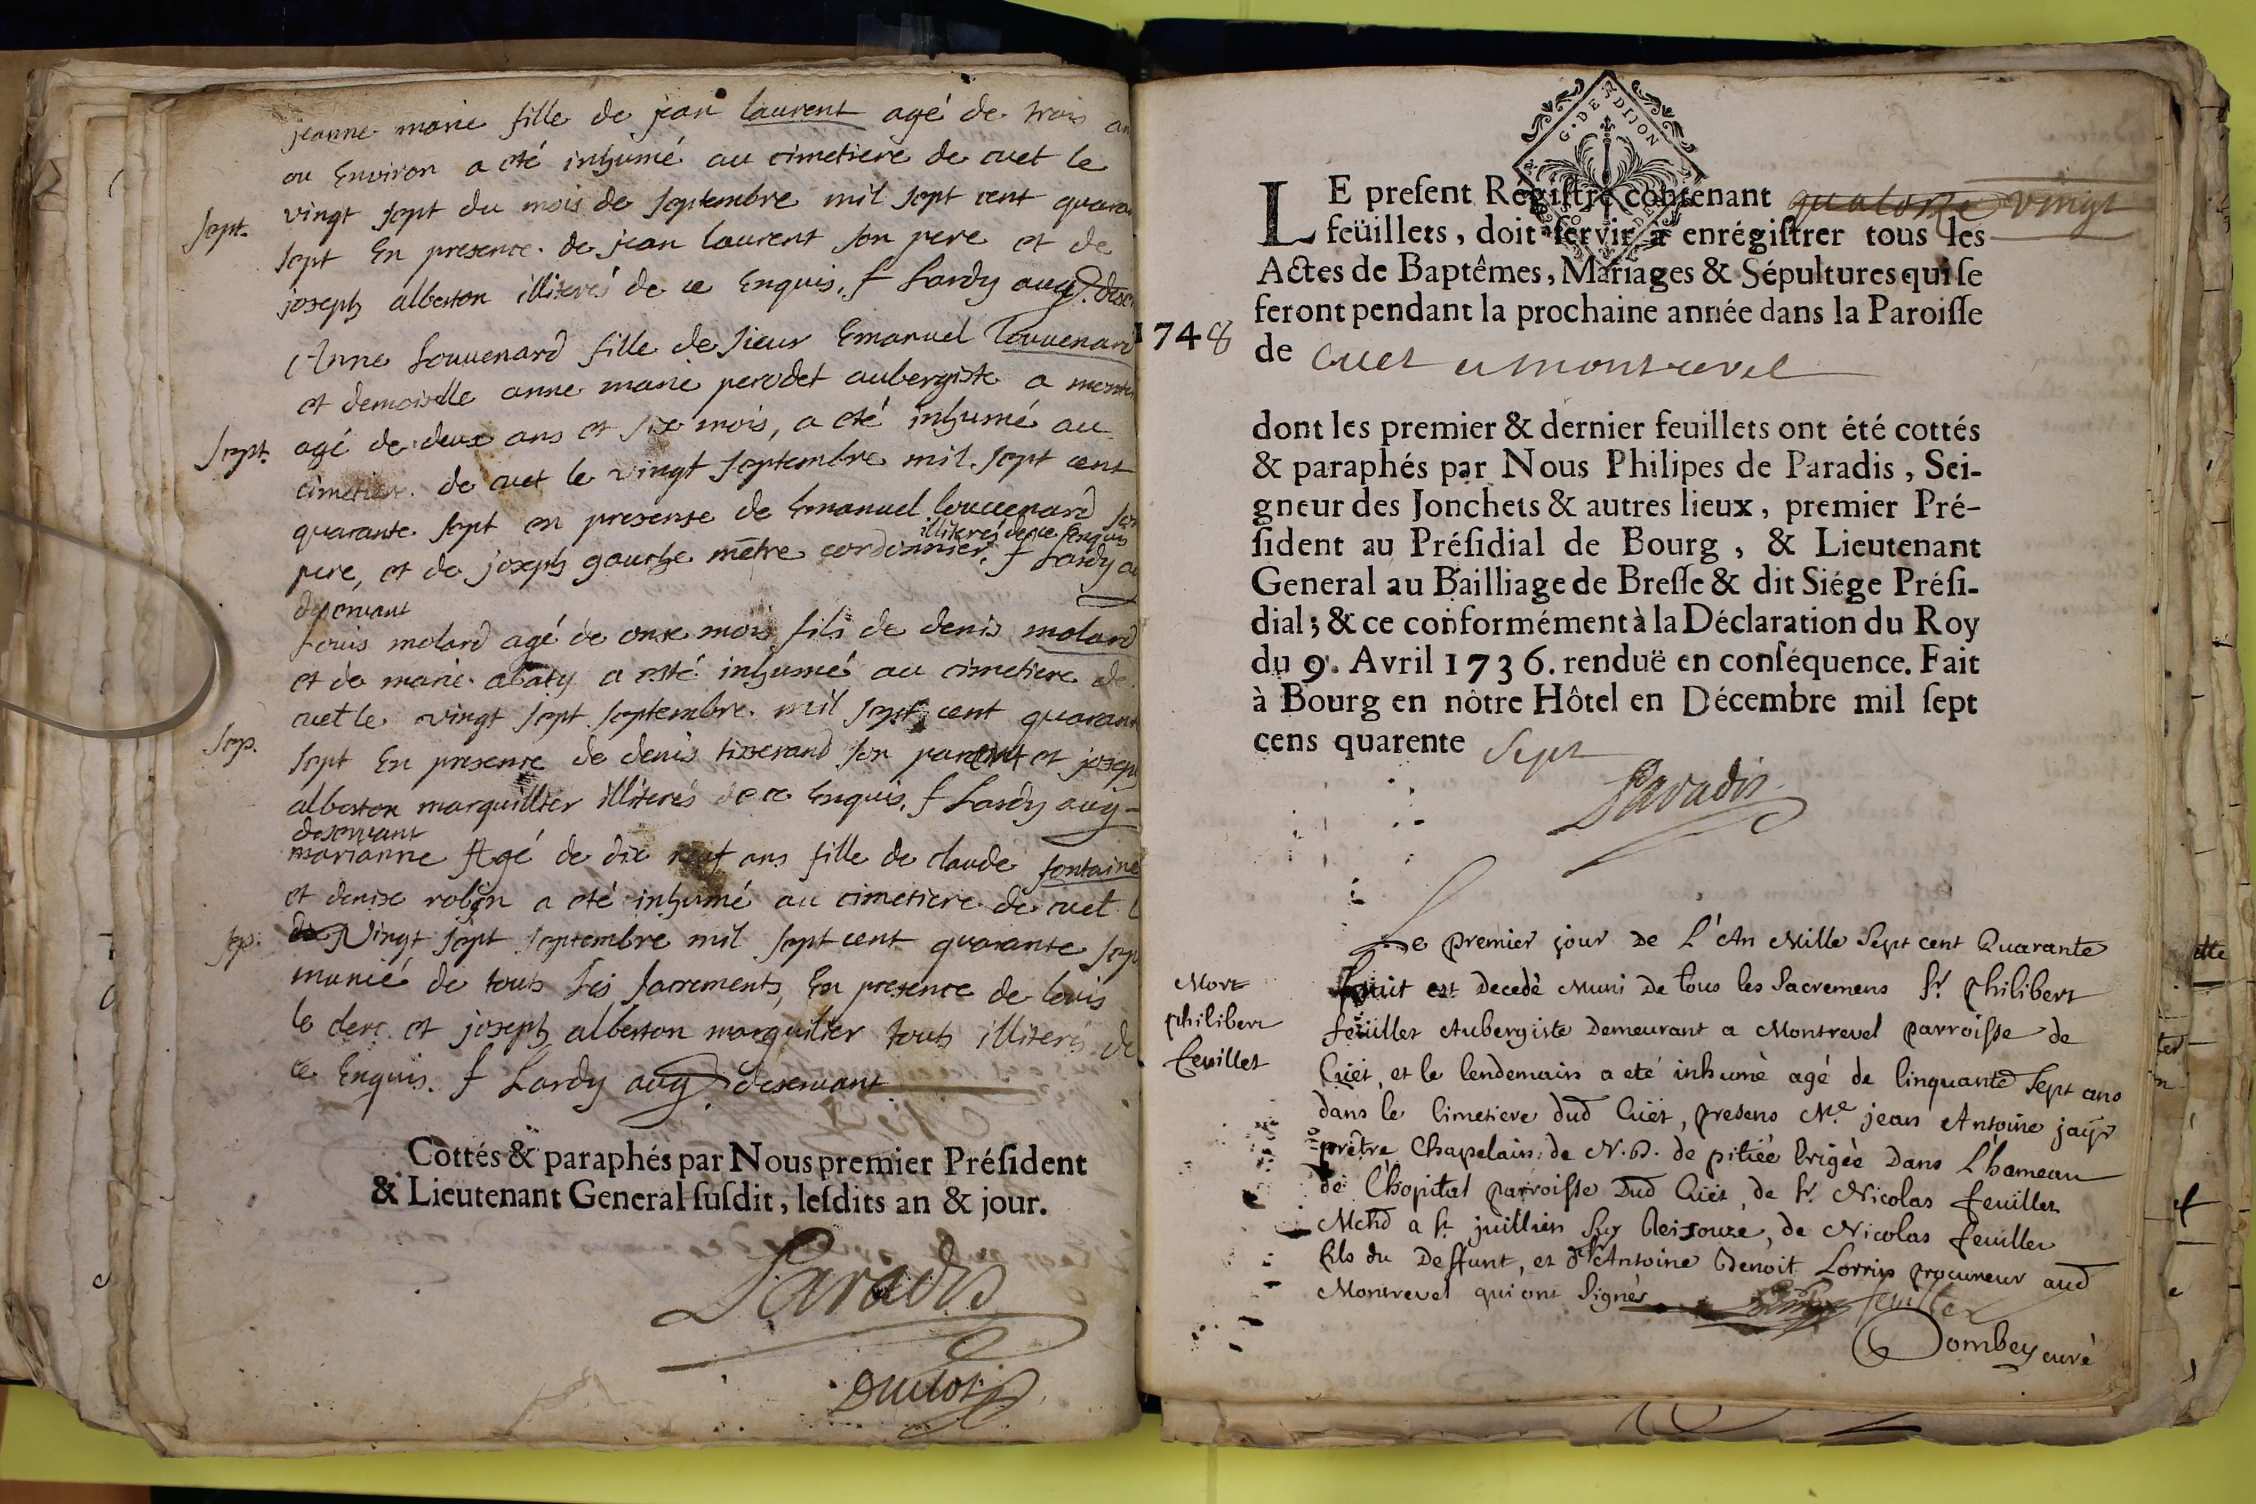 jeanne marie fille de jean laurent agé de trois an
ou Environ a eté inhumé au cimetiere de cuet le
vingt sept du mois de septembre mil sept cent quaran
sept.
sept En presence de jean laurent son pere et de
joseph alberton illiterés de ce Enquis. f Lardy aug. deser
Anne Louvenard fille de sieur Emanuel Louvenard
et demoiselle anne marie perodet aubergiste a montr
agé de deux ans et six mois, a eté inhumé au
sept.
cimetiere de cuet le vingt septembre mil sept cent
quarante sept en presense de Emanuel Louvenard son
illiterés de ce Enquis
pere, et de joseph gauche mêtre cordonnier. f Lardy au
deservant
Louis molard agé de onse mois fils de denis molard
et de marie abaty a esté inhumé au cimetiere de
cuet le vingt sept septembre mil sept cent quarant
sep.
sept En presence de denis tisserand son parent et joseph
alberton marquillier illiterés de ce Enquis. f Lardy aug
deservant
marianne Agé de dix neuf ans fille de claude fontaine
et denise robin a eté inhumé au cimetiere de cuet l
sep.
Vingt sept septembre mil sept cent quarante sep
munié de touts ses sacrements, En presence de louis
le clerc et joseph alberton marquilier touts illiterés de
ce Enquis. f Lardy aug. deservant
Cottés & paraphés par Nous premier Président
& Lieutenant General susdit, lesdits an & jour.
Paradis
Duclot
G. DE DIJON
LE present Régistre contenant quatorze vingt
feüillets, doit servir à enrégistrer tous les
Actes de Baptêmes, Mariages & Sépultures qui se
feront pendant la prochaine année dans la Paroisse
1748
de Cuet et Montrevel
dont les premier & dernier feuillets ont été cottés
& paraphés par Nous Philipes de Paradis, Sei-
gneur des Jonchets & autres lieux, premier Pré-
sident au Présidial de Bourg, & Lieutenant
General au Bailliage de Bresse & dit Siége Prési-
dial; & ce conformément à la Déclaration du Roy
du 9. Avril 1736. renduë en conséquence. Fait
à Bourg en nôtre Hôtel en Décembre mil sept
cens quarente Sept
Paradis
Le premier jour de L'An Mille Sept cent Quarante
Mort
philibert
feuillet
huit est Decedé Muni De tous les Sacremens Sr. philibert
feüillet Aubergiste Demeurant a Montrevel parroisse de
Cüet, et le lendemain a eté inhumé agé de Cinquante Sept ans
dans le Cimetiere dud Cüet, presens Me. jean Antoine jayr
prêtre Chapelain de N. D. de pitiée Erigée Dans L'hameau
de L'hopital parroisse Dud Cüet, de Sr. Nicolas feuillet
Mchd a St. juillien Sur Reisouze, de Nicolas feuillet
fils du Deffunt, et de Sr Antoine Benoit Lorrin procureur aud
Montrevel qui ont Signés feuillet
Dombey curé